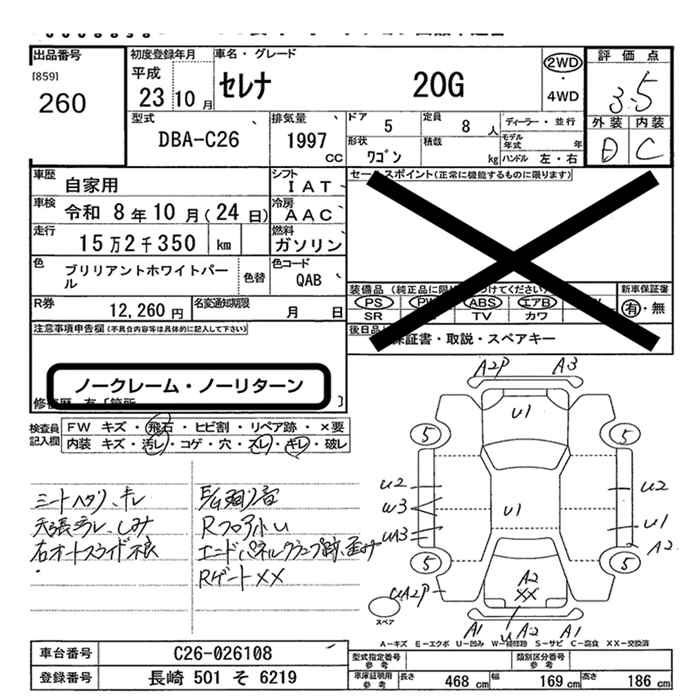 出品番号
[859]
260
初度登録年月
平成
23 10 月
車名・グレード
セレナ 20G
2WD
・
4WD
評価点
3.5
外装 内装
D C
型式
DBA-C26
排気量
1997
CC
ドア
5
定員
8 人
ディーラー・並行
形状
ワゴン
積数
kg
モデル年式 年
ハンドル 左・右
車歴
自家用
シフト
IAT
車検
令和 8年10月(24日)
冷房
AAC
走行
15万2千350 km
燃料
ガソリン
色
ブリリアントホワイトパール
色替
色コード
QAB
R券
12,260円
名変通知期限
月 日
セールスポイント(正常に機能するものに限ります)
装備品
PS
ABS
エアB
SR
TV
カワ
新車保証書
有・無
後日品
保証書・取説・スペアキー
注意事項申告欄(不具合内容等は具体的に記入して下さい)
ノークレーム・ノーリターン
検査員
記入欄
FW キズ・飛石・ヒビ割・リペア跡・×要
内装 キズ・汚レ・コゲ・穴・スレ・キレ・破レ
シートヘタリ、キレ
天張ヨゴレ、しみ
右オートスライド不良
R フロアトU
エンドパネルクランプ跡、歪み
Rゲート××
A2P A3
U1
5 5
U2 U2
U3 U1
U1
A2
5 5
UA2P
A2
××
A1 U A2 A1
スペア
A-キズ E-エクボ U-凹み W-補修跡 S-サビ C-腐食 XX-交換済
車台番号
C26-026108
登録番号
長崎 501 そ 6219
型式指定番号
参考
類別区分番号
参考
車庫証明用
参考
長さ 468 cm 幅 169 cm 高さ 186 cm